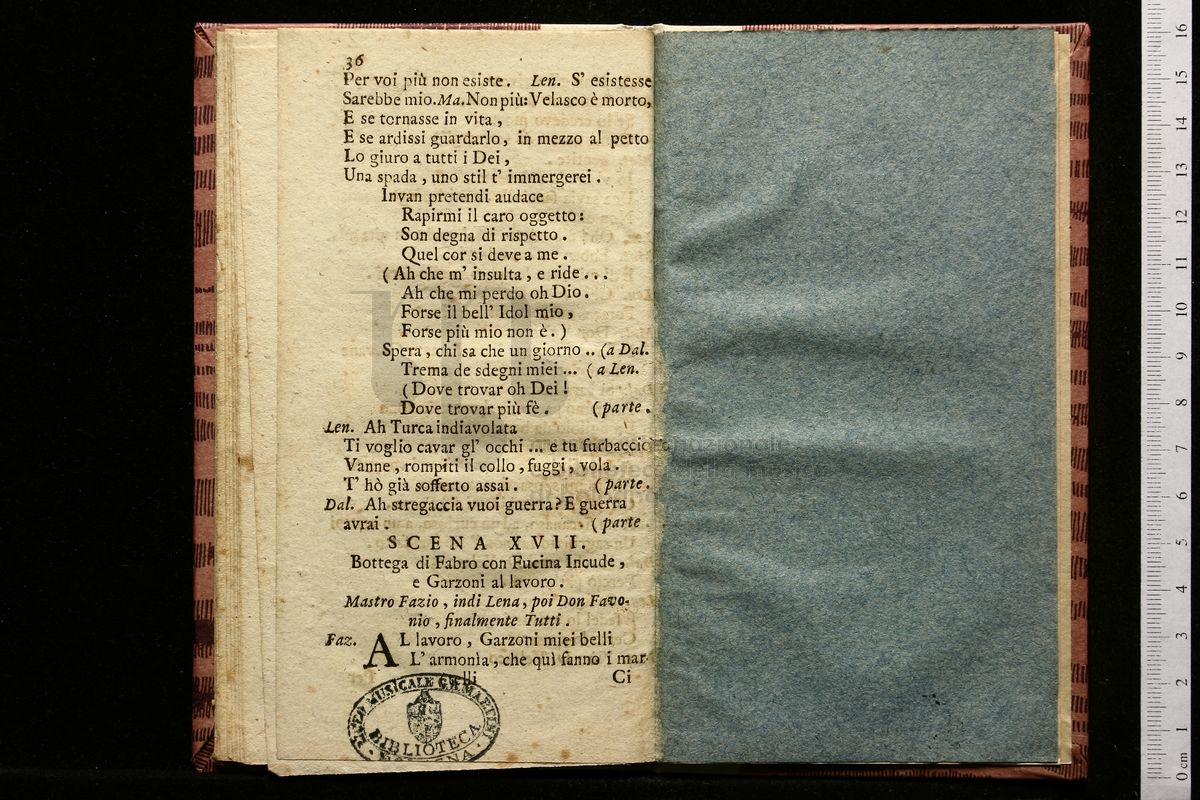 36
Per voi più non esiste. Len. S' esistesse
Sarebbe mio. Ma. Non più: Velasco è morto,
E se tornasse in vita,
E se ardissi guardarlo, in mezzo al petto
Lo giuro a tutti i Dei,
Una spada, uno stil t' immergerei.
Invan pretendi audace
Rapirmi il caro oggetto:
Son degna di rispetto.
Quel cor si deve a me.
(Ah che m' insulta, e ride...
Ah che mi perdo oh Dio.
Forse il bell' Idol mio,
Forse più mio non è.)
Spera, chi sa che un giorno .. (a Dal.
Trema de sdegni miei ... (a Len.
(Dove trovar oh Dei!
Dove trovar più fè. (parte.
Len. Ah Turca indiavolata
Ti voglio cavar gl' occhi ... e tu furbaccio
Vanne, rompiti il collo, fuggi, vola.
T' hò già sofferto assai. (parte.
Dal. Ah stregaccia vuoi guerra? E guerra
avrai. (parte.
SCENA XVII.
Bottega di Fabro con Fucina Incude,
e Garzoni al lavoro.
Mastro Fazio, indi Lena, poi Don Favo-
nio, finalmente Tutti.
Faz. AL lavoro, Garzoni miei belli
L' armonìa, che quì fanno i mar-
lli Ci
MUSICALE G.B. MARTINI
BIBLIOTECA
0 cm 1 2 3 4 5 6 7 8 9 10 11 12 13 14 15 16